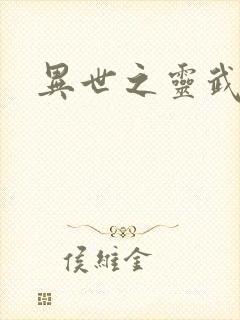 異世之靈武
侯維金